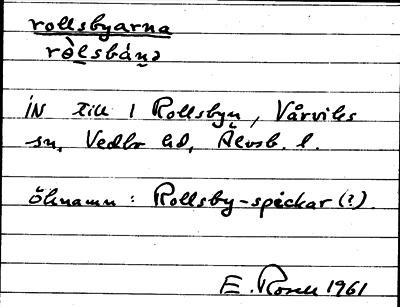 rollsbyarna
ròlsbánə
IN till 1 Rollsbyn, Vårviks
sn, Vedbo hd, Älvsb. l.
Öknamn: Rollsby-spickar (?).
E. Rosell 1961